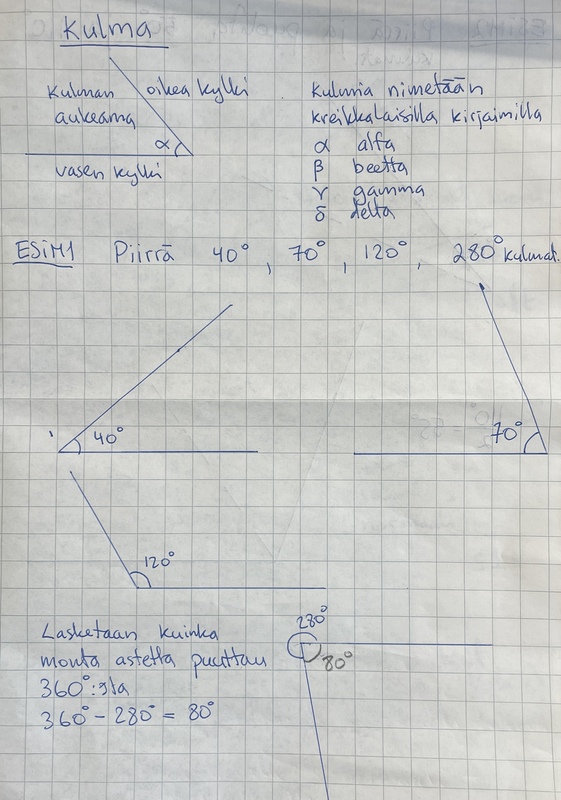 Kulma
Kulman oikea kylki
aukeama
α
vasen kylki
Kulmia nimetään
kreikkalaisilla kirjaimilla
α alfa
β beetta
γ gamma
δ delta
ESIM1 Piirrä 40°, 70°, 120°, 280° kulmat.
40°
70°
120°
Lasketaan kuinka
monta astetta puuttuu
360°:sta
360° - 280° = 80°
280°
80°